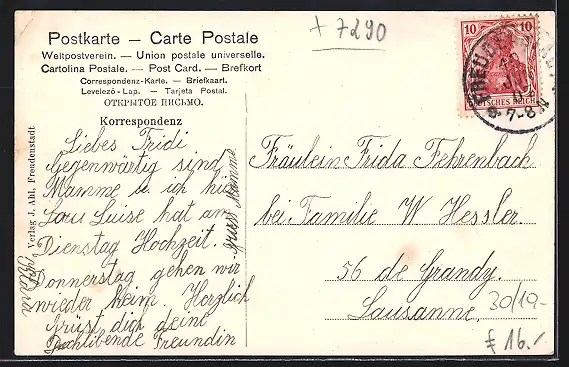 + 7290
Postkarte – Carte Postale
Weltpostverein. — Union postale universelle.
Cartolina Postale. — Post Card. — Brefkort
Correspondenz-Karte. — Briefkaart.
Levelező-Lap. — Tarjeta Postal.
ОТКРЫТОЕ ПИСЬМО.
Korrespondenz
10 10
DEUTSCHES REICH
7-8N
Liebes Fridi
Gegenwärtig sind
Mamme u. ich hier
Luise hat am
Dienstag Hochzeit.
Donnerstag gehen wir
wieder heim. Herzlich
grüst dich deine
Dichlibende Freundin
Klara
gruss Mamme
Verlag J. Ahl, Freudenstadt
Fräulein Frida Fehrenbach
bei Familie W Hessler.
56 de Grandy.
Lausanne.
30/19-
£ 16.-